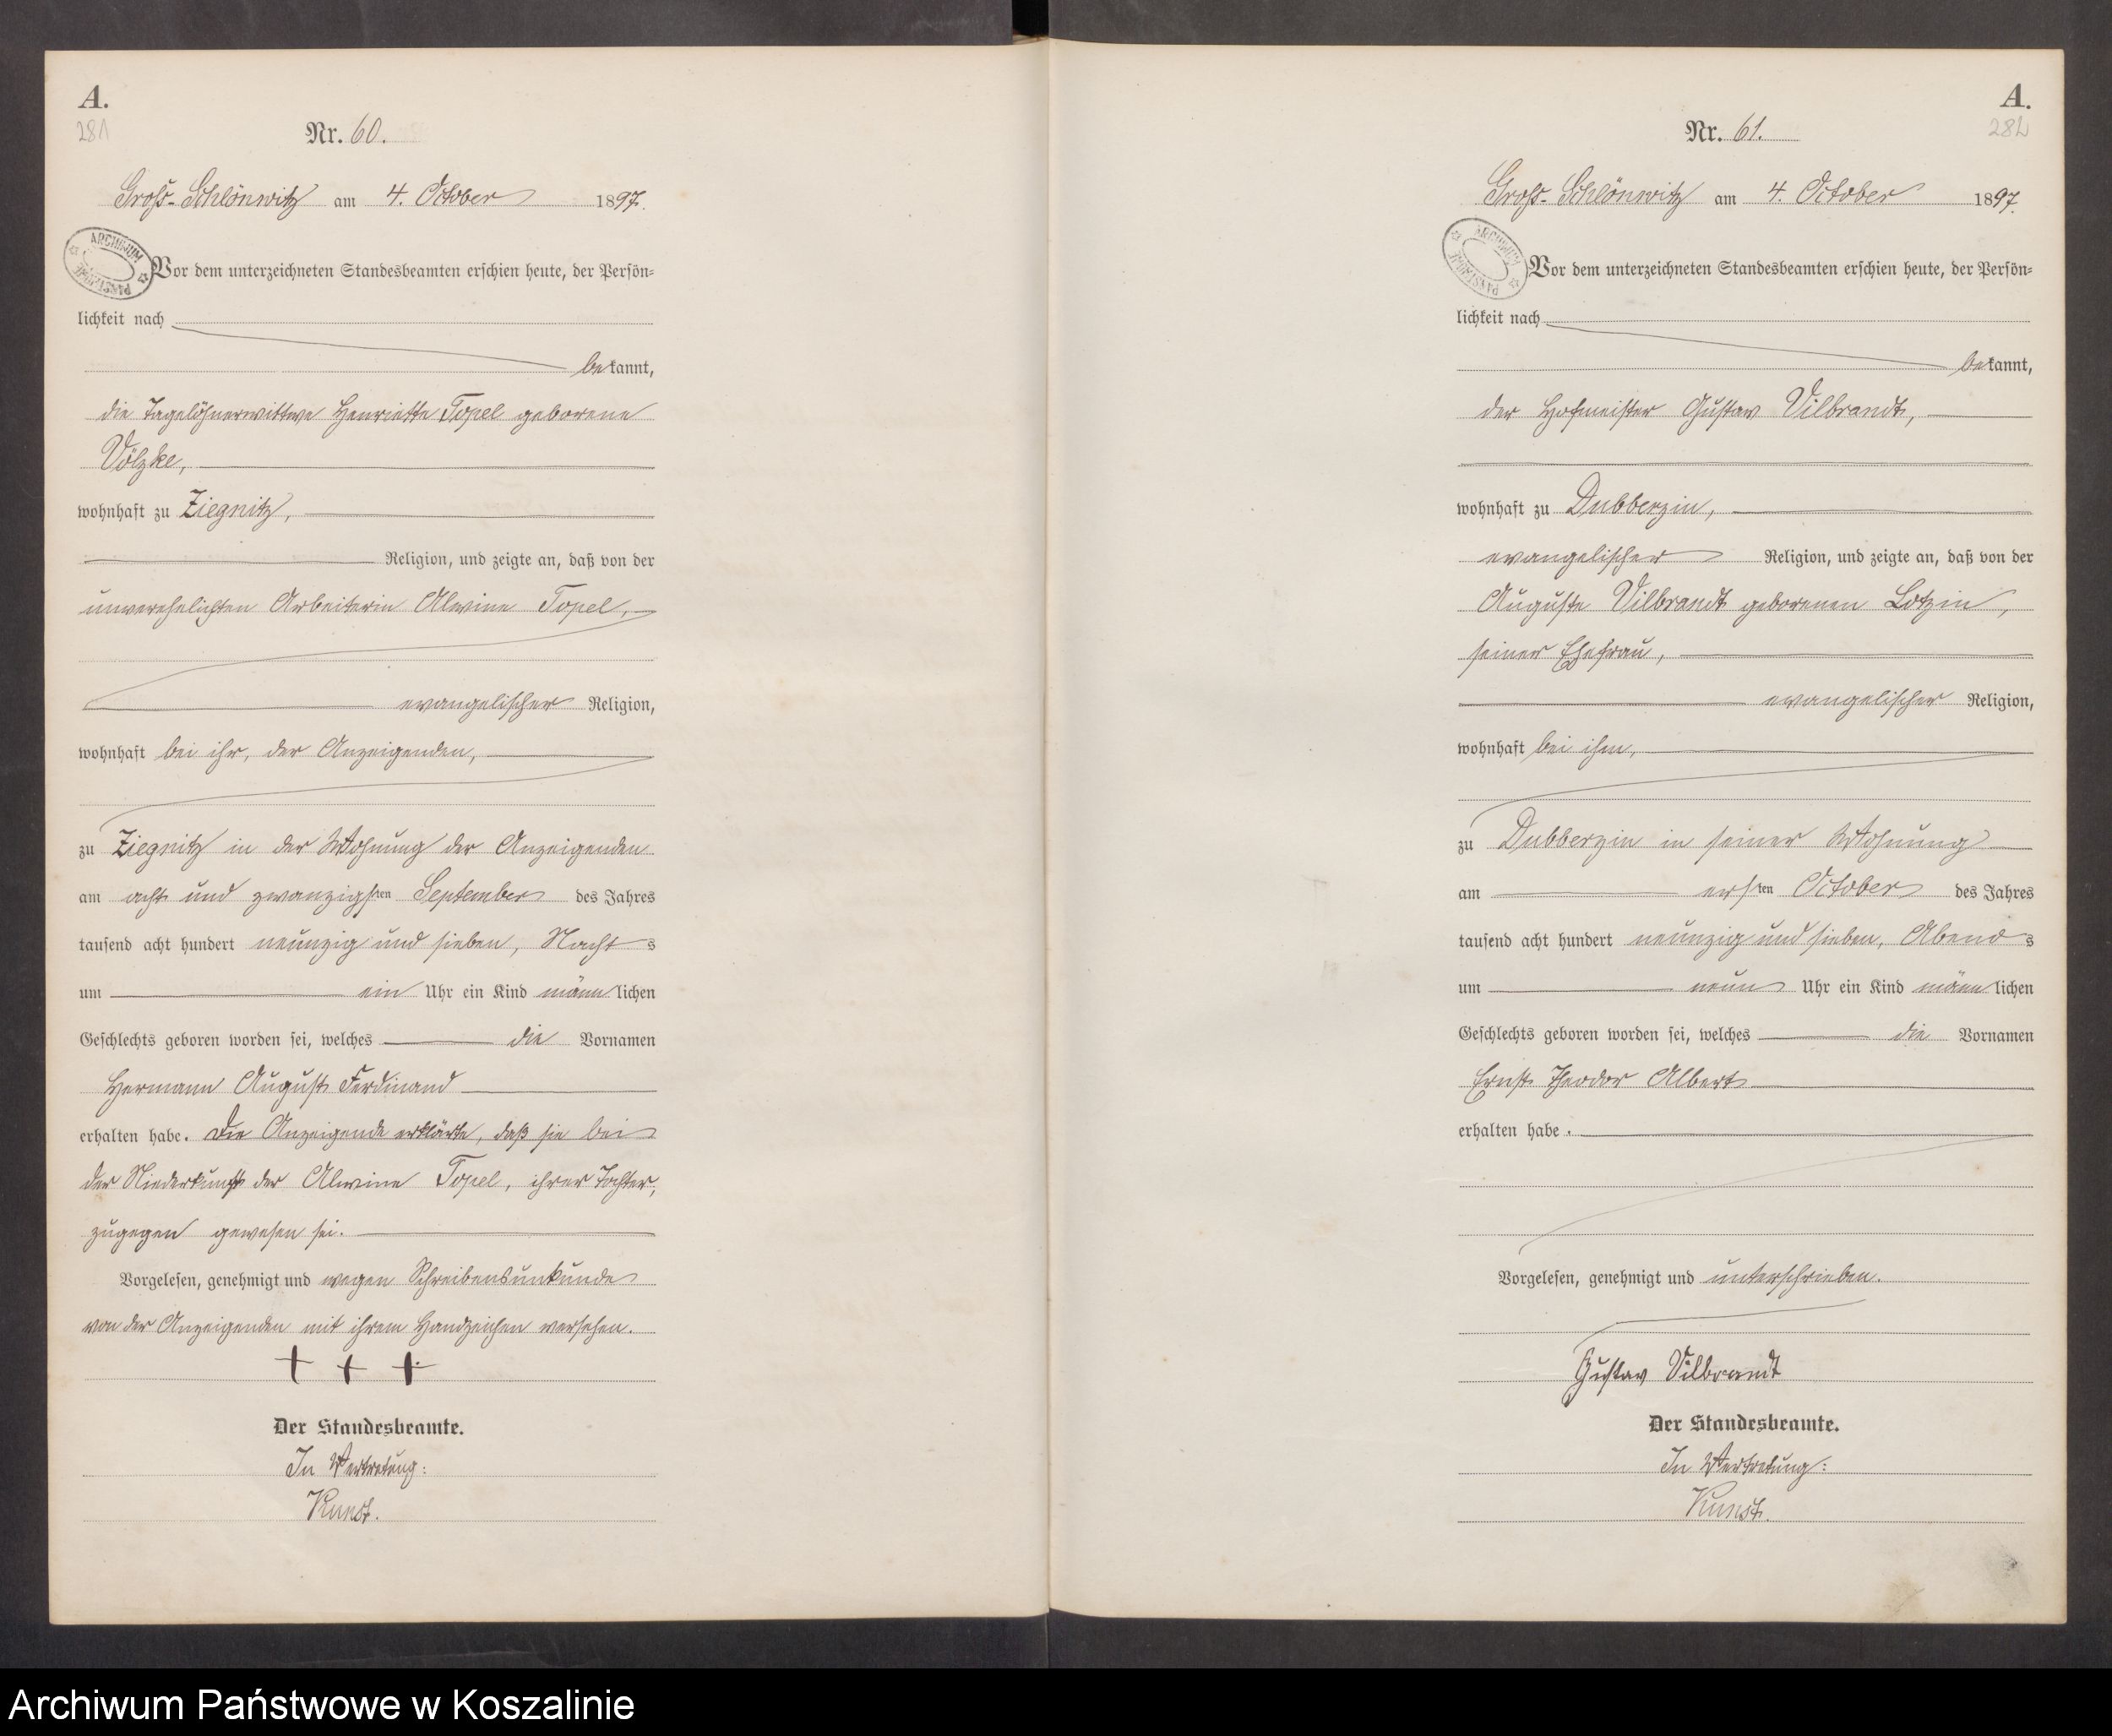 A.
281
Nr. 60.
Groß-Schlönwitz am 4. October 1897.
ARCHIWUM PAŃSTWOWE
Vor dem unterzeichneten Standesbeamten erschien heute, der Persön=
lichkeit nach
bekannt,
die Tagelöhnerwittwe Henriette Topel geborene
Völzke,
wohnhaft zu Ziegnitz,
Religion, und zeigte an, daß von der
unverehelichten Arbeiterin Alwine Topel,
evangelischer Religion,
wohnhaft bei ihr, der Anzeigenden,
zu Ziegnitz in der Wohnung der Anzeigenden
am acht und zwanzigsten September des Jahres
tausend acht hundert neunzig und sieben, Nachts
um ein Uhr ein Kind männlichen
Geschlechts geboren worden sei, welches die Vornamen
Hermann August Ferdinand
erhalten habe. Die Anzeigende erklärte, daß sie bei
der Niederkunft der Alwine Topel, ihrer Tochter,
zugegen gewesen sei.
Vorgelesen, genehmigt und wegen Schreibensunkunde
von der Anzeigenden mit ihrem Handzeichen versehen.
+ + +
Der Standesbeamte.
In Vertretung:
Kunst.
A.
282
Nr. 61.
Groß-Schlönwitz am 4. October 1897.
ARCHIWUM PAŃSTWOWE
Vor dem unterzeichneten Standesbeamten erschien heute, der Persön=
lichkeit nach
bekannt,
der Hofmeister Gustav Vilbrandt,
wohnhaft zu Dubberzin,
evangelischer Religion, und zeigte an, daß von der
Auguste Vilbrandt geborenen Lotzin,
seiner Ehefrau,
evangelischer Religion,
wohnhaft bei ihm,
zu Dubberzin in seiner Wohnung
am ersten October des Jahres
tausend acht hundert neunzig und sieben, Abends
um neun Uhr ein Kind männlichen
Geschlechts geboren worden sei, welches die Vornamen
Ernst Theodor Albert
erhalten habe.
Vorgelesen, genehmigt und unterschrieben.
Gustav Vilbrandt
Der Standesbeamte.
In Vertretung:
Kunst.
Archiwum Państwowe w Koszalinie